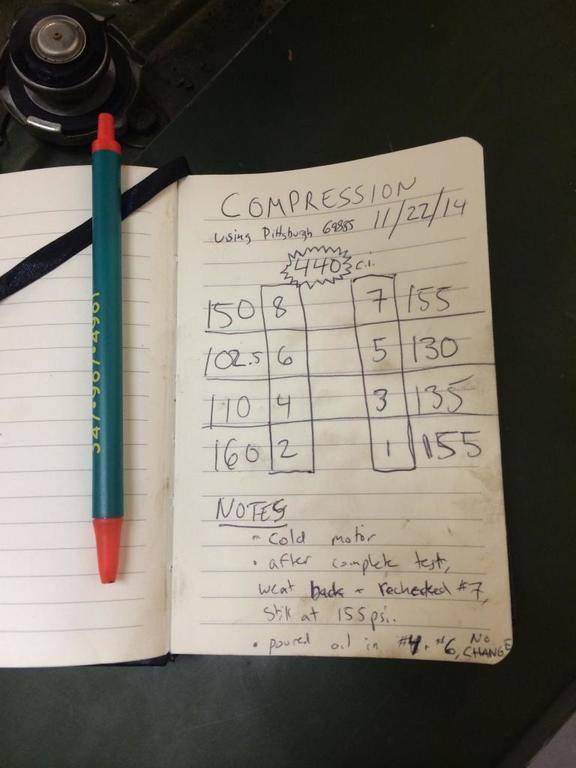 COMPRESSION
using Pittsburgh 69885 11/22/14
440 C.I.
150 8 7 155
102.5 6 5 130
110 4 3 135
160 2 1 155
NOTES
- cold motor
• after complete test,
went back + rechecked #7,
Still at 155psi.
• poured oil in #4 + #6, NO CHANGE